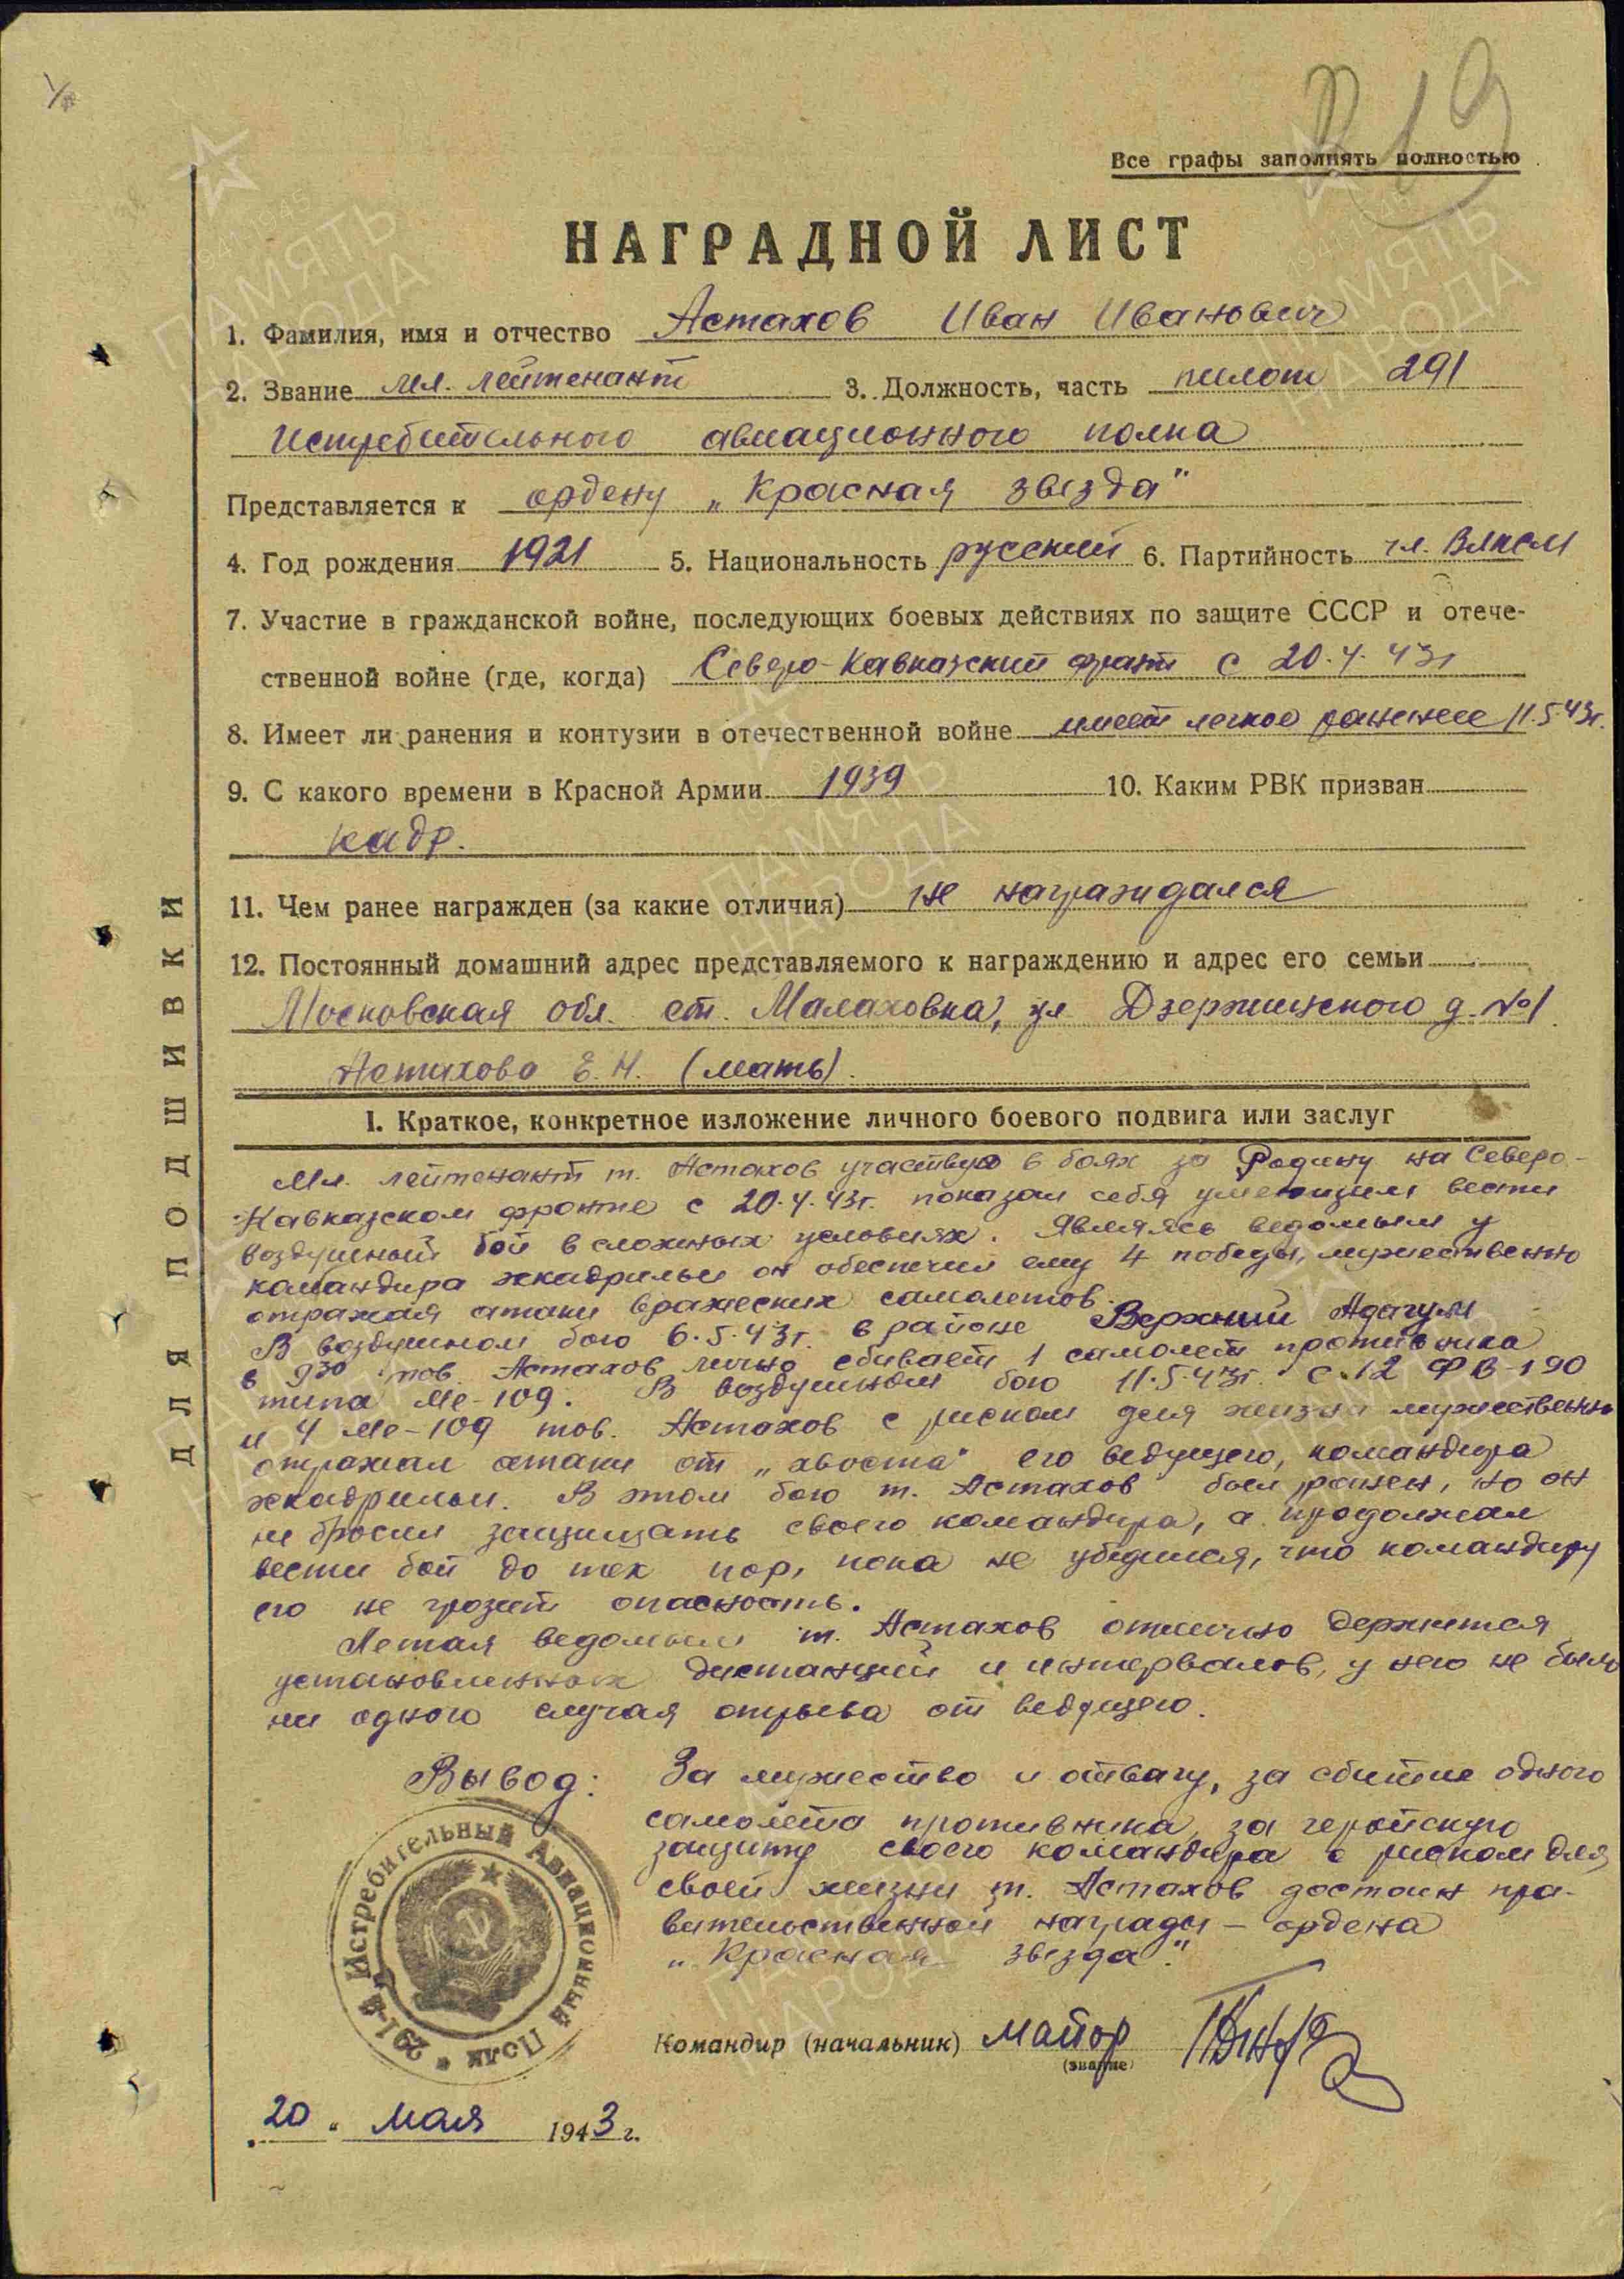 219
Все графы заполнять полностью
НАГРАДНОЙ ЛИСТ
1. Фамилия, имя и отчество Астахов Иван Иванович
2. Звание мл. лейтенант 3. Должность, часть пилот 291
истребительного авиационного полка
Представляется к ордену „Красная звезда"
4. Год рождения 1921 5. Национальность русский 6. Партийность чл. ВЛКСМ
7. Участие в гражданской войне, последующих боевых действиях по защите СССР и отече-
ственной войне (где, когда) Северо-Кавказский фронт с 20.4.43г
8. Имеет ли ранения и контузии в отечественной войне имеет легкое ранение 11.5.43г.
9. С какого времени в Красной Армии 1939 10. Каким РВК призван
кадр.
11. Чем ранее награжден (за какие отличия) не награждался
12. Постоянный домашний адрес представляемого к награждению и адрес его семьи
Московская обл. ст. Малаховка, ул Дзержинского д. №1
Астахова Е. Н. (мать).
I. Краткое, конкретное изложение личного боевого подвига или заслуг
Мл. лейтенант т. Астахов участвуя в боях за Родину на Северо-
Кавказском фронте с 20.4.43г. показал себя умеющим вести
воздушный бой в сложных условиях. Являясь ведомым у
командира эскадрильи он обеспечил ему 4 победы, мужественно
отражая атаки вражеских самолетов.
В воздушном бою 6.5.43г. в районе Верхний Адагум
в 9 30 тов. Астахов лично сбивает 1 самолет противника
типа Ме-109. В воздушном бою 11.5.43г. с 12 ФВ-190
и 4 Ме-109 тов. Астахов с риском для жизни мужественно
отражал атаки от „хвоста" его ведущего, командира
эскадрильи. В этом бою т. Астахов был ранен, но он
не бросил защищать своего командира, а продолжал
вести бой до тех пор, пока не убедился, что командиру
его не грозит опасность.
Летая ведомым т. Астахов отлично держится
установленных дистанций и интервалов, у него не было
ни одного случая отрыва от ведущего.
Вывод: За мужество и отвагу, за сбитие одного
самолета противника, за геройскую
защиту своего командира с риском для
своей жизни т. Астахов достоин пра-
вительственной награды – ордена
„Красная звезда".
291-й Истребительный Авиационный Полк
Командир (начальник) майор
(звание)
20 " мая 1943 г.
ДЛЯ ПОДШИВКИ
ПАМЯТЬ
НАРОДА